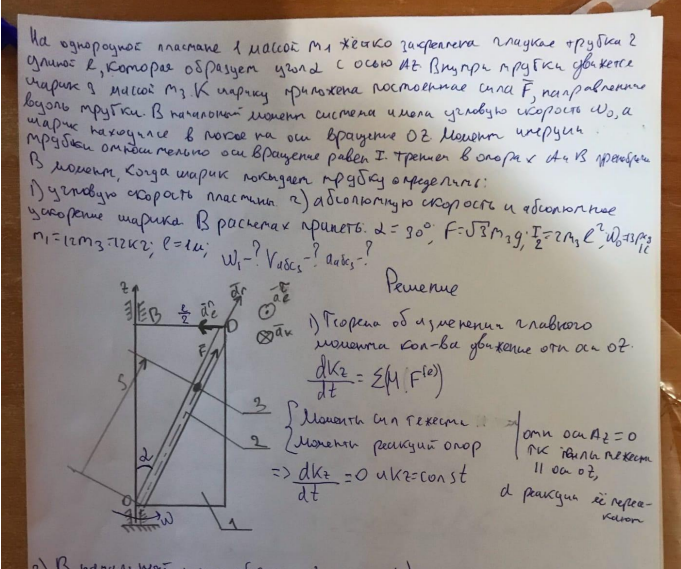 На однородной пластине 1 массой m₁ жёско закреплена гладкая трубка 2
длиной l, которая образует угол α с осью Az Внутри трубки движется
шарик 3 массой m₃. К шарику приложена постоянная сила F̄, направленная
вдоль трубки. В начальный момент система имела угловую скорость ω₀, а
шарик находился в покое на оси вращение OZ Момент инерции
трубки относительно оси вращение равен I. Трением в опорах A и B
В момент, когда шарик покидает трубку определить:
1) угловую скорость пластины. 2) абсолютную скорость и абсолютное
ускорение шарика В расчетах принять: α = 30°, F=√3 m₃g; I₂=2m₃l²,
m₁=12m₃=12кг; l=1м; ω₁-? Vабс₃-? aабс₃-?
Решение
1) Теорема об изменении главного
момента кол-ва движение отн оси OZ.
dKz/dt = Σ(M F⁽ᵉ⁾)
Моменты сил тежести
Моменты реакций опор
отн оси Az = 0
тк силы тежести
|| оси oz,
а реакции её пересе-
кают
=> dKz/dt = 0 и Kz=const
z
B
l/2
S
α
O
ω
1
2
3
F̄